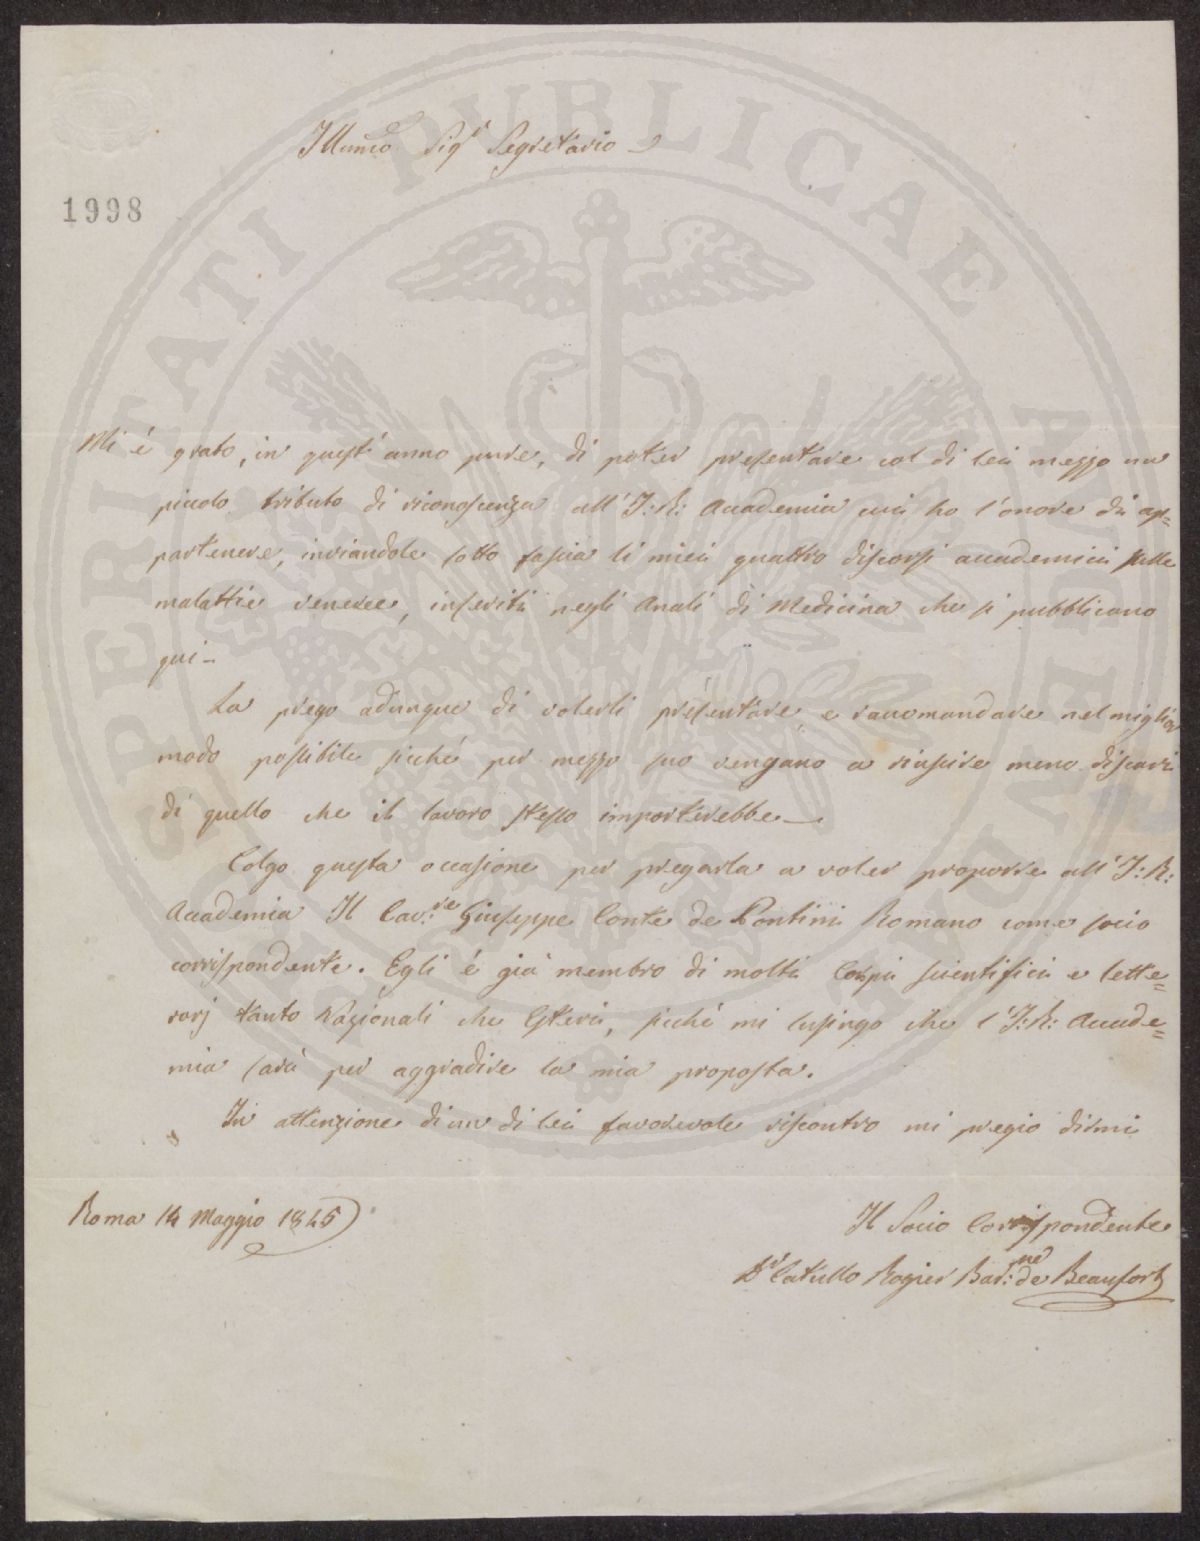 Illumo Sigr Segretario
1998
Mi è grato, in quest'anno pure, di poter presentare col di lei mezzo un
piccolo tributo di riconoscenza all'I: R: Accademia cui ho l'onore di ap=
partenere, inviandole sotto fascia li miei quattro discorsi accademici sulle
malattie veneree, inseriti negli Anali di Medicina che si pubblicano
qui-
La prego adunque di volerli presentare e raccomandare nel miglior
modo possibile sicché per mezzo suo vengano a riuscire meno discari
di quello che il lavoro stesso importerebbe_
Colgo questa occasione per pregarla a voler proporre all'I: R:
Accademia Il Cav:re Giuseppe Conte de Pontini Romano come socio
corrispondente. Egli è già membro di molti Corpi scientifici e lette=
rarj tanto Nazionali che Esteri, sicché mi lusingo che l'I: R: Accade=
mia sarà per aggradire la mia proposta.
In attenzione di un di lei favorevole riscontro mi pregio dirmi
Roma 14 Maggio 1845
Il Socio Corrispondente
Dr Catullo Rogier Bar:ne de Beaufort
SPERITATI PUBLICAE